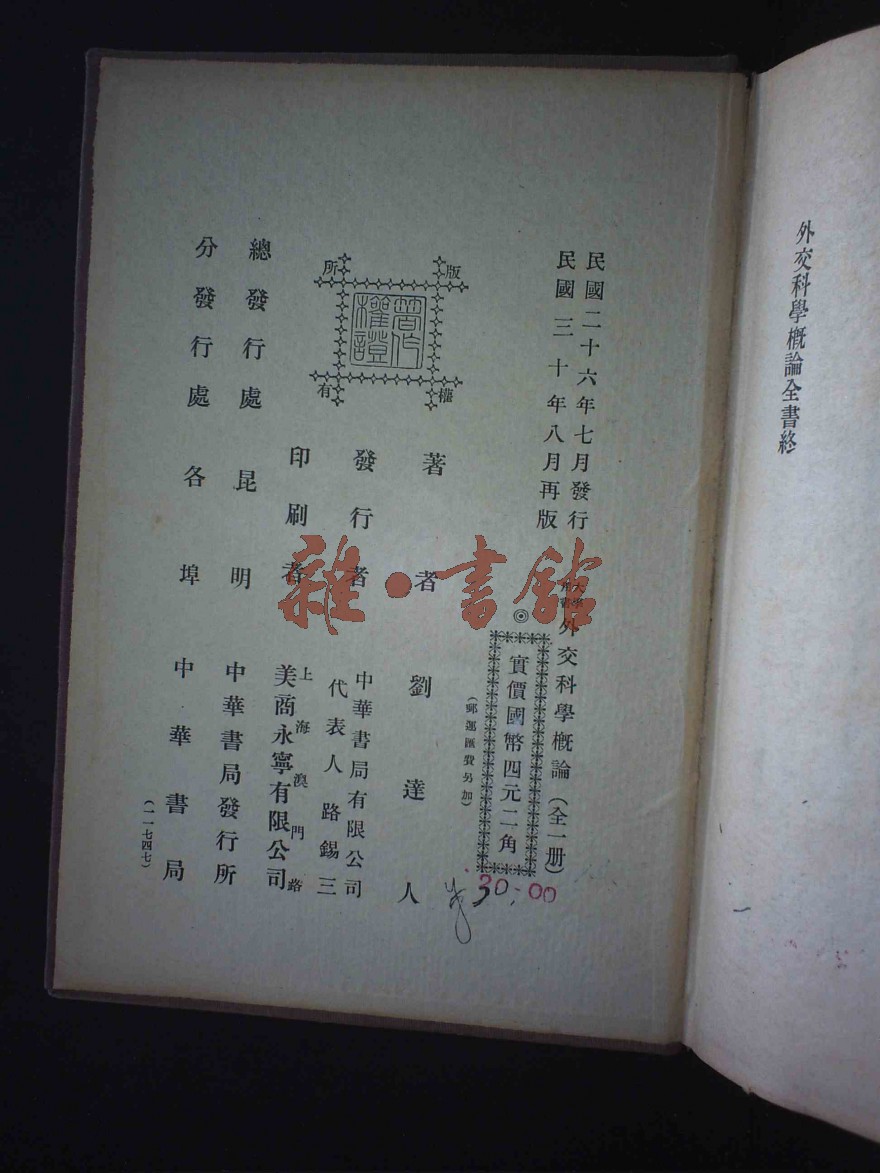 外交科學概論全書終
民國二十六年七月發行
民國三十年八月再版
大學用書
外交科學概論（全一册）
◎
實價國幣四元二角
（郵運匯費另加）
30.00
著者 劉達人
發行者 中華書局有限公司
代表人 路錫三
印刷者 上海澳門路
美商永寧有限公司
總發行處 昆明 中華書局發行所
分發行處 各埠 中華書局
（一一七四七）
版權所有
著作權證
雜·書館